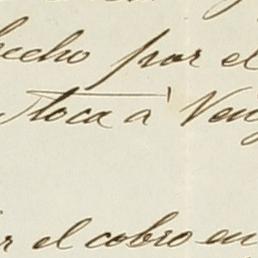 hecho por el
toca à Ven
r el cobro en